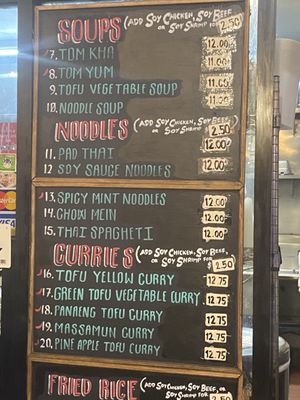 SOUPS (ADD SOY CHICKEN, SOY BEEF
OR SOY SHRIMP FOR 2.50
7. TOM KHA 12.00
8. TOM YUM 11.00
9. TOFU VEGETABLE SOUP 11.00
10. NOODLE SOUP 11.00
NOODLES (ADD SOY CHICKEN, SOY BEEF,
OR SOY SHRIMP 2.50
11. PAD THAI 12.00
12 SOY SAUCE NOODLES 12.00
13. SPICY MINT NOODLES 12.00
14. CHOW MEIN 12.00
15. THAI SPAGHETI 12.00
CURRIES (ADD SOY CHICKEN, SOY BEEF,
OR SOY SHRIMP FOR $2.50
16. TOFU YELLOW CURRY 12.75
17. GREEN TOFU VEGETABLE CURRY. 12.75
18. PANAENG TOFU CURRY 12.75
19. MASSAMUN CURRY 12.75
20. PINE APPLE TOFU CURRY 12.75
FRIED RICE (ADD SOY CHICKEN, SOY BEEF, OR
SOY SHRIMP FOR 2.50
MasterCard
VISA